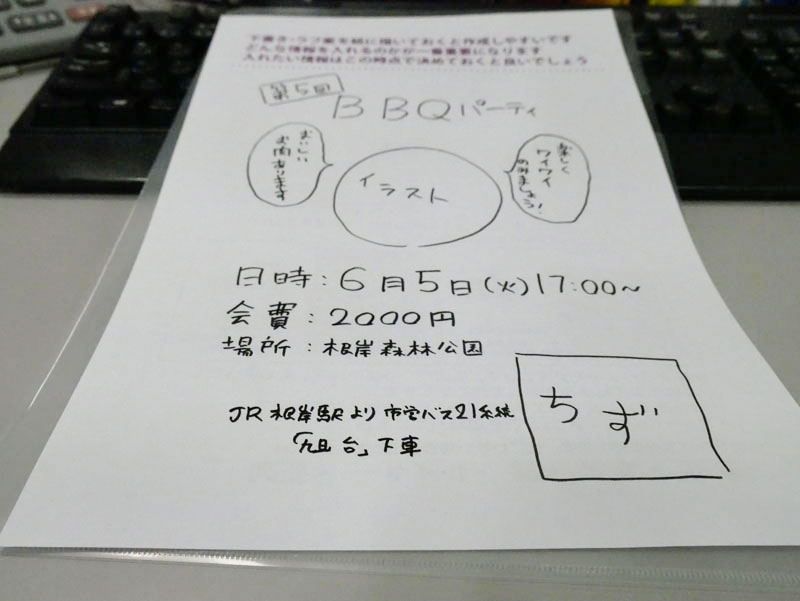 下書き・ラフ案を紙に描いておくと作成しやすいです
どんな情報を入れるのかが一番重要になります
入れたい情報はこの時点で決めておくと良いでしょう
第5回
BBQパーティ
おいしい
お肉あります
イラスト
楽しく
ワイワイ
のみましょう!
日時:6月5日(火)17:00~
会費:2000円
場所:根岸森林公園
JR根岸駅より市営バス21系統
「旭台」下車
ちず